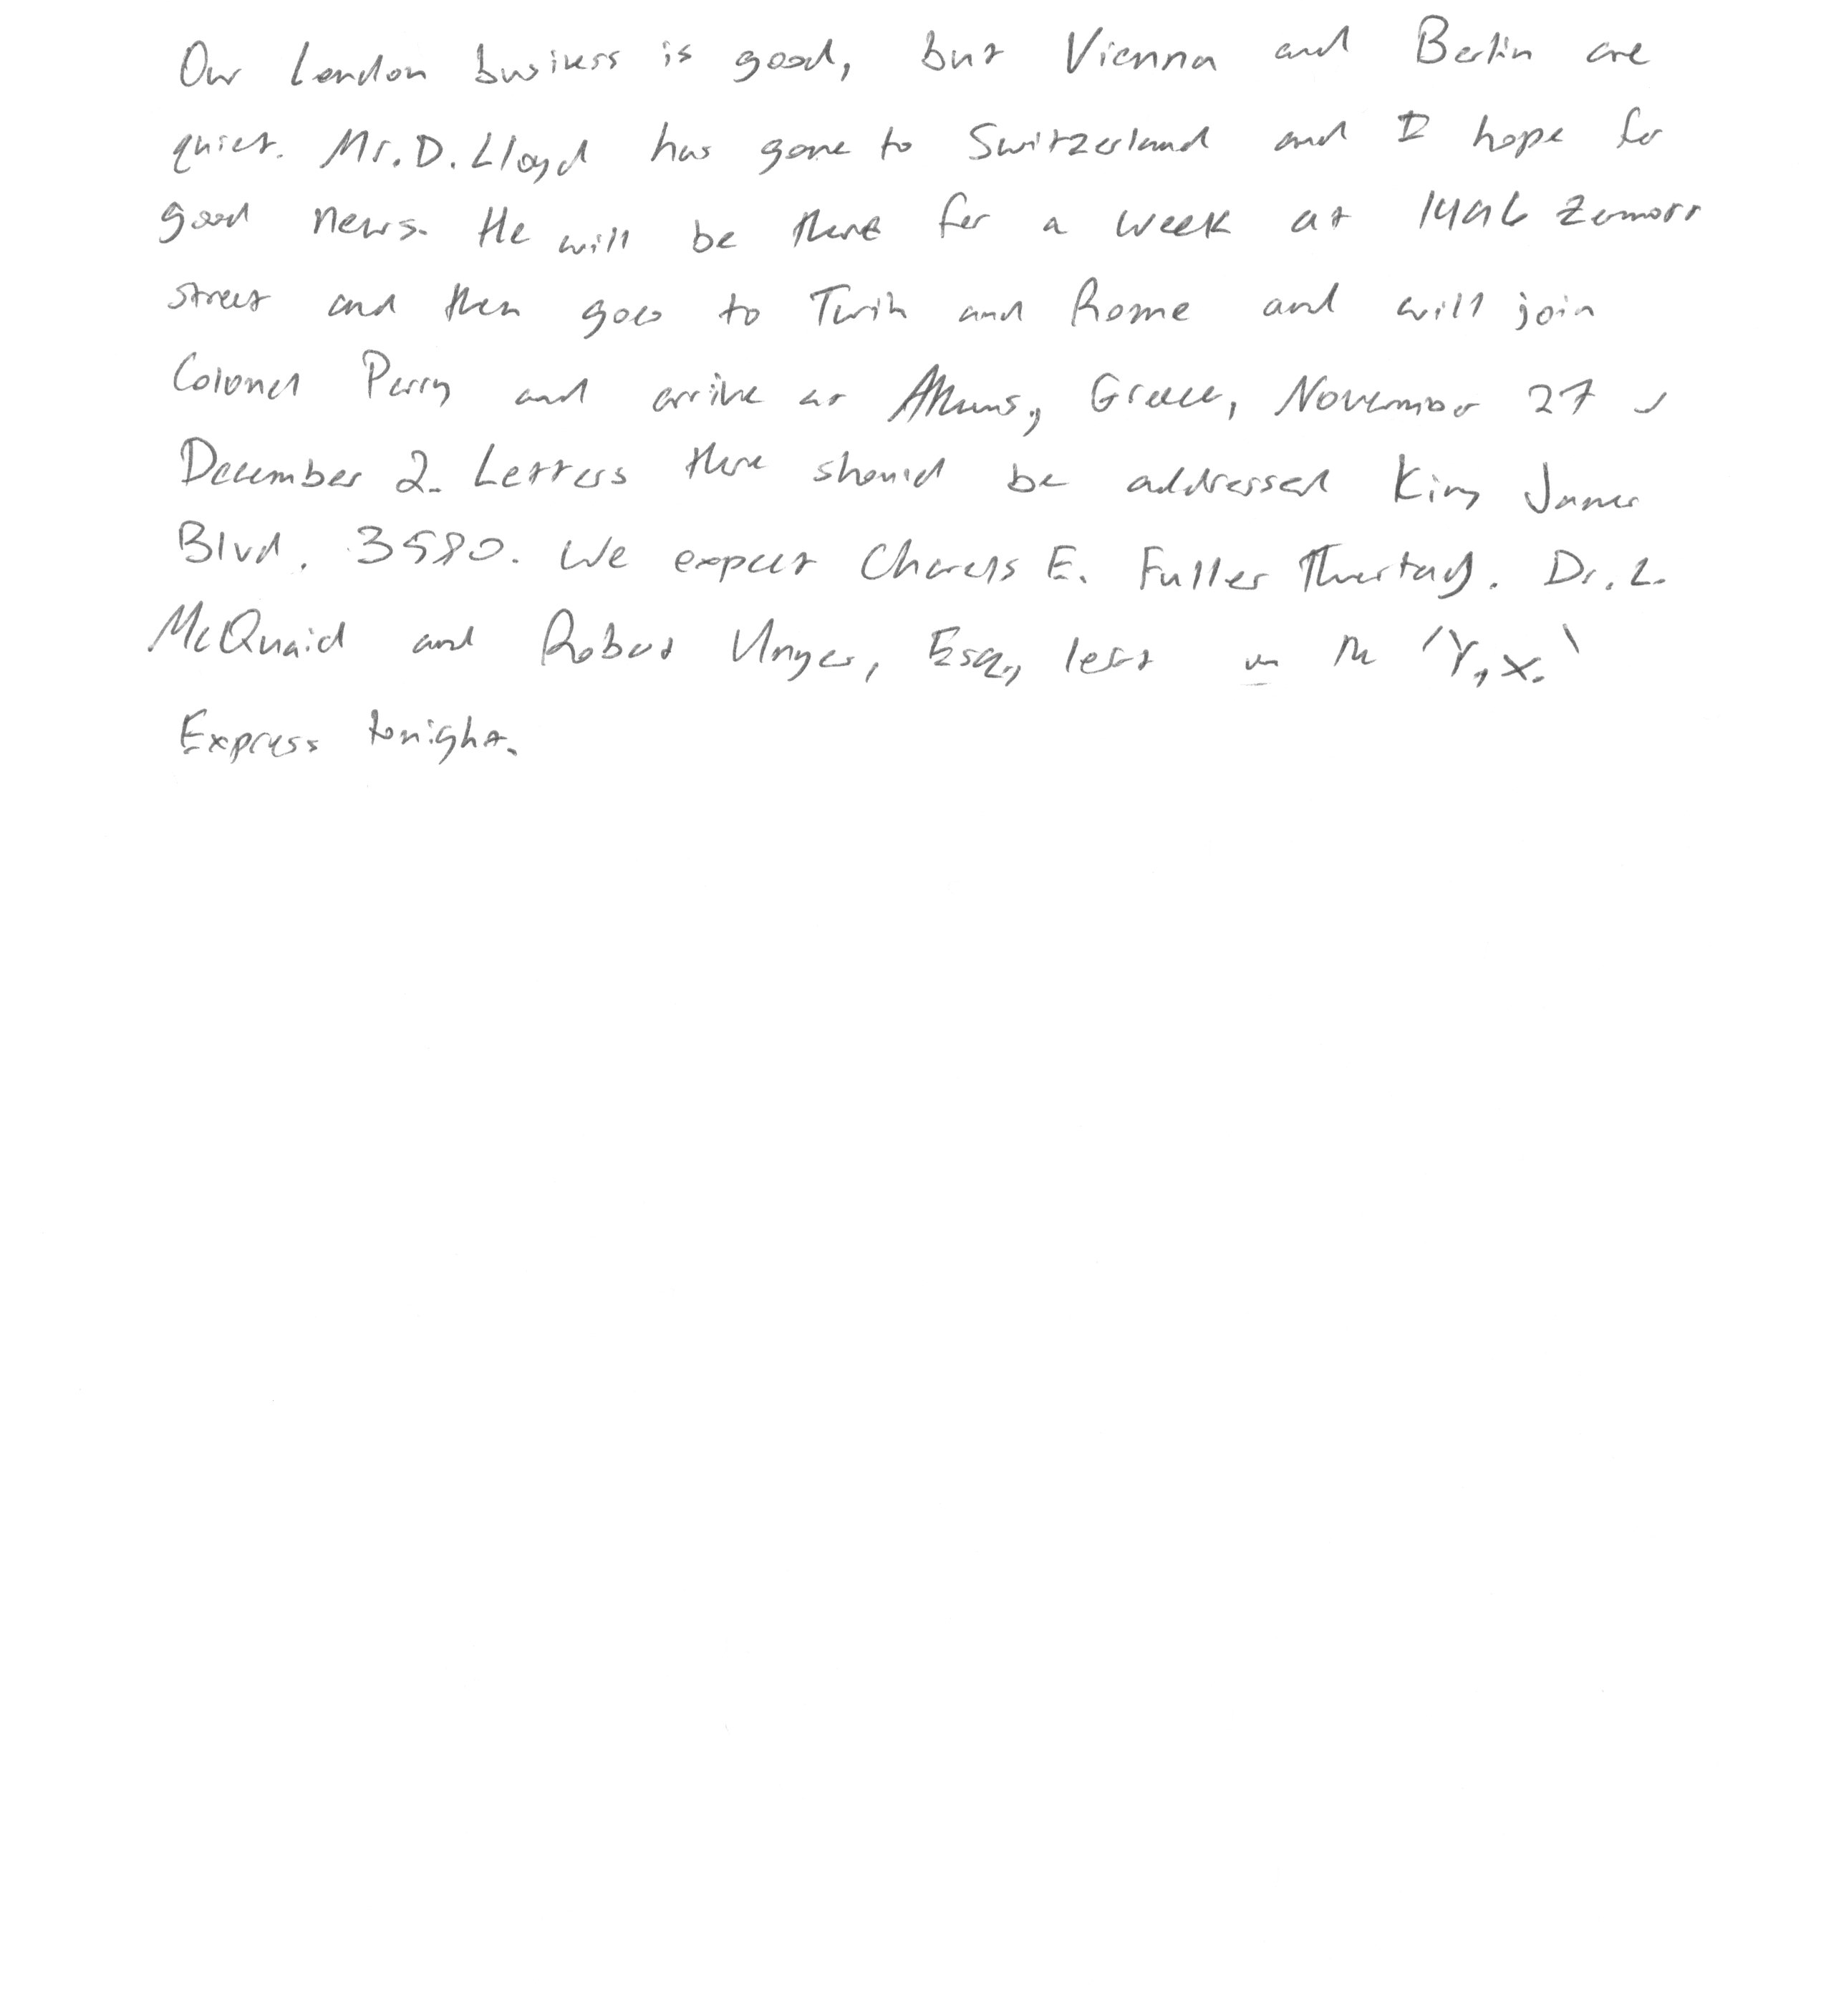 Our London business is good, but Vienna and Berlin are
quiet. Mr. D. Lloyd has gone to Switzerland and I hope for
good news. He will be there for a week at 1496 Zermott
street and then goes to Turin and Rome and will join
Colonel Parry and arrive at Athens, Greece, November 27 or
December 2. Letters there should be addressed King James
Blvd. 3580. We expect Charels E. Fuller Thuesday. Dr. L.
McQuaid and Robert Unger, Esq., left on the "Y.X."
Express tonight.